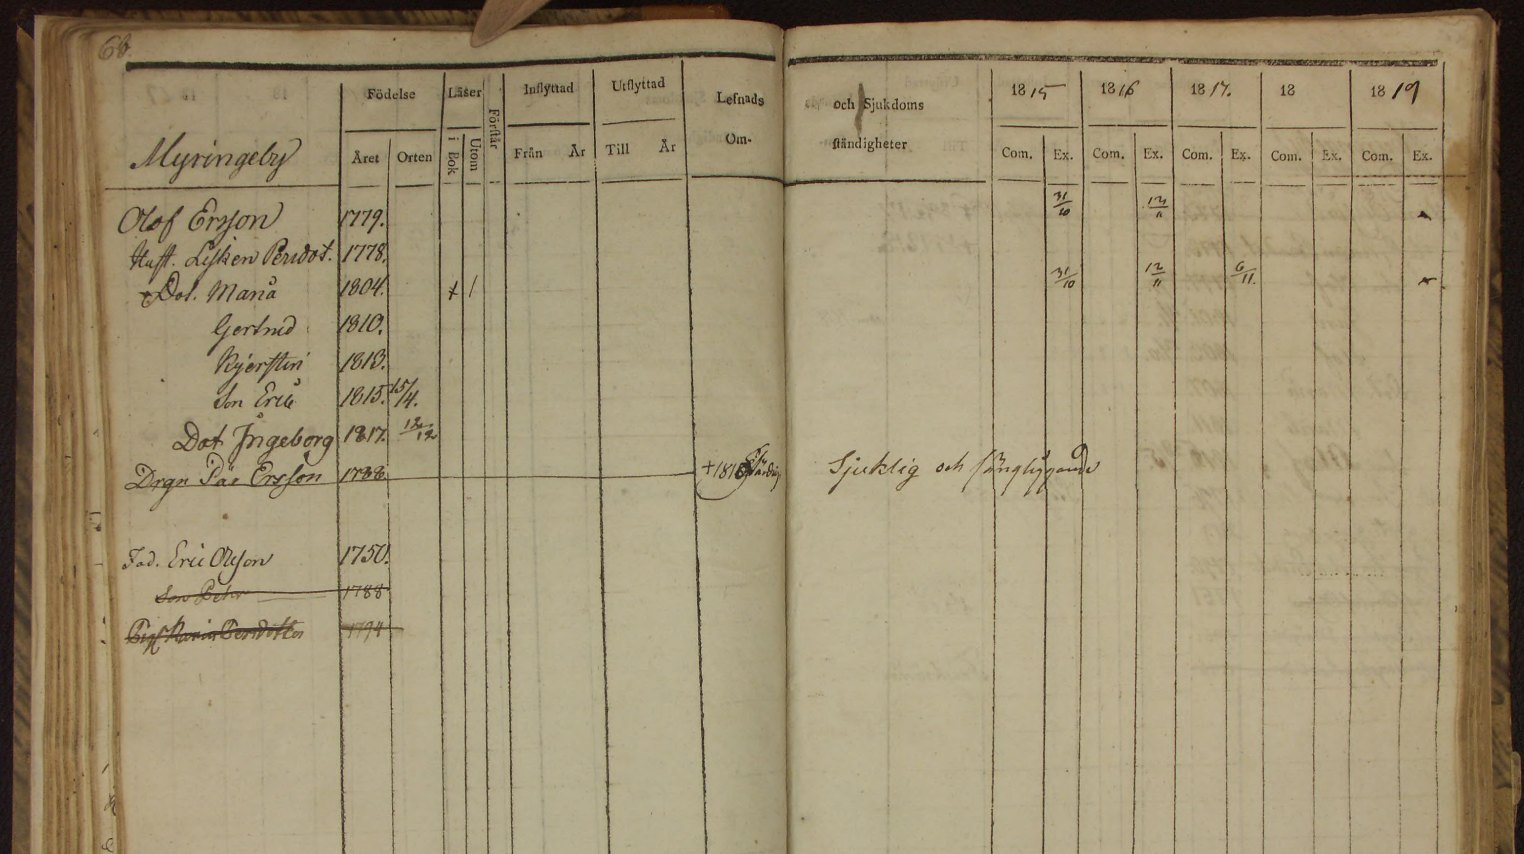 66.
Födelse Läser Förstår Inflyttad Utflyttad Lefnads och Sjukdoms 1815 1816 1817. 18 1819
Myringeby Året Orten i Bok Utom Från År Till År Om- ständigheter Com. Ex. Com. Ex. Com. Ex. Com. Ex. Com. Ex.
Olof Ersson 1779. 31/10 12/11
Hust. Lisken Persdot. 1778.
Dot. Maria 1804. + / 31/10 12/11 6/11.
Gertrud 1810.
Kjerstin 1813.
Son Eric 1815. 15/4.
Dot Ingeborg 1817. 12/12
Drgn Pär Ersson 1788. Sjuklig och sängliggande
Fad. Eric Olsson 1750.
Son Pehr 1788
Pig Karin Persdotter 1794